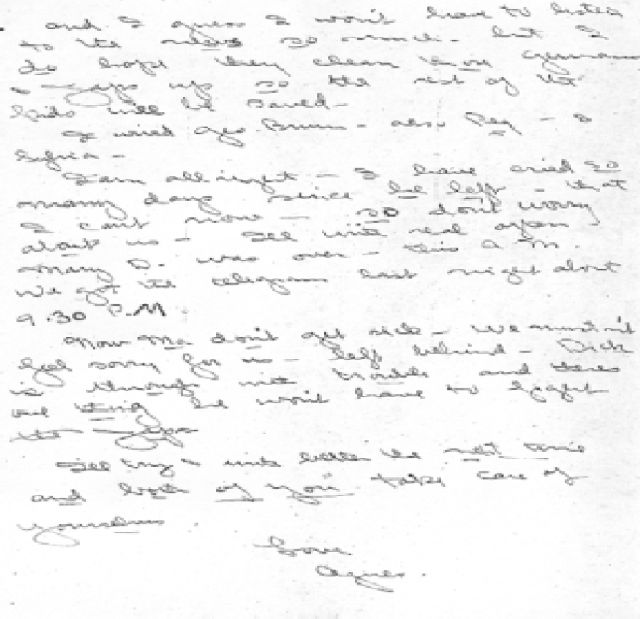 and I guess I won't have to listen
to the news so much - but I
do hope they clean them Germans
& Japs up so the rest of the
kids will be saved -
I wired Geo. Brum - also Peg - &
I am all right - I have cried so
many days since he left - that
I can't now - so don't worry
about us - See will real often
Mary D. was over - this A.M.
We got the telegram last night about
9:30 P.M
Now Ma don't get sick - We mustn't
feel sorry for us - left behind - Dick
is through with trouble and
and he won't have to fight
the Japs
See try & write better the next time
and both of you take care of
yourselves.
Love
Agnes.